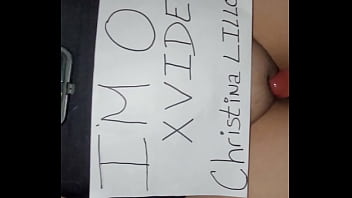 I'M O
XVIDE
Christina LILLO